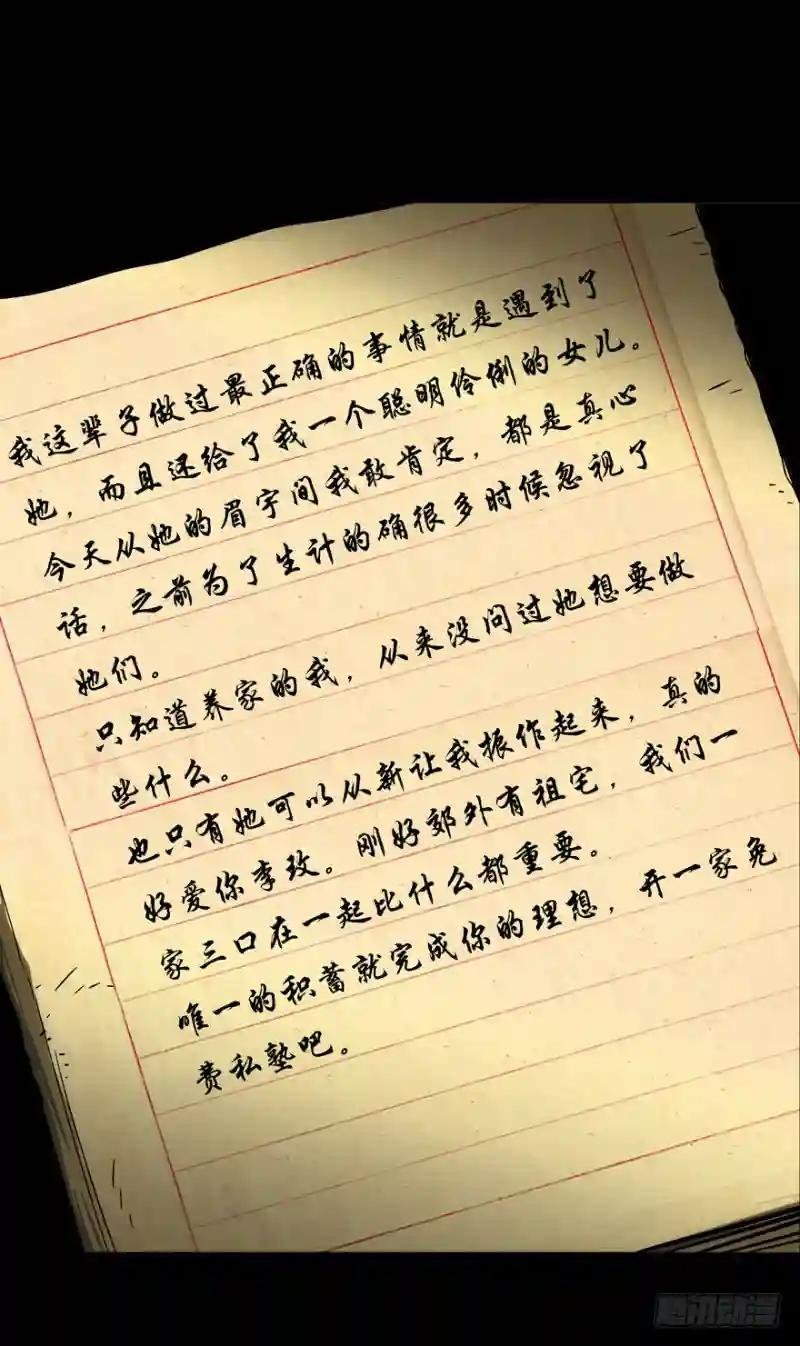 我这辈子做过最正确的事情就是遇到了
她，而且还给了我一个聪明伶俐的女儿。
今天从她的眉宇间我敢肯定，都是真心
话，之前为了生计的确很多时候忽视了
她们。
只知道养家的我，从来没问过她想要做
些什么。
也只有她可以从新让我振作起来，真的
好爱你李玫。刚好郊外有祖宅，我们一
家三口在一起比什么都重要。
唯一的积蓄就完成你的理想，开一家免
费私塾吧。
腾讯动漫